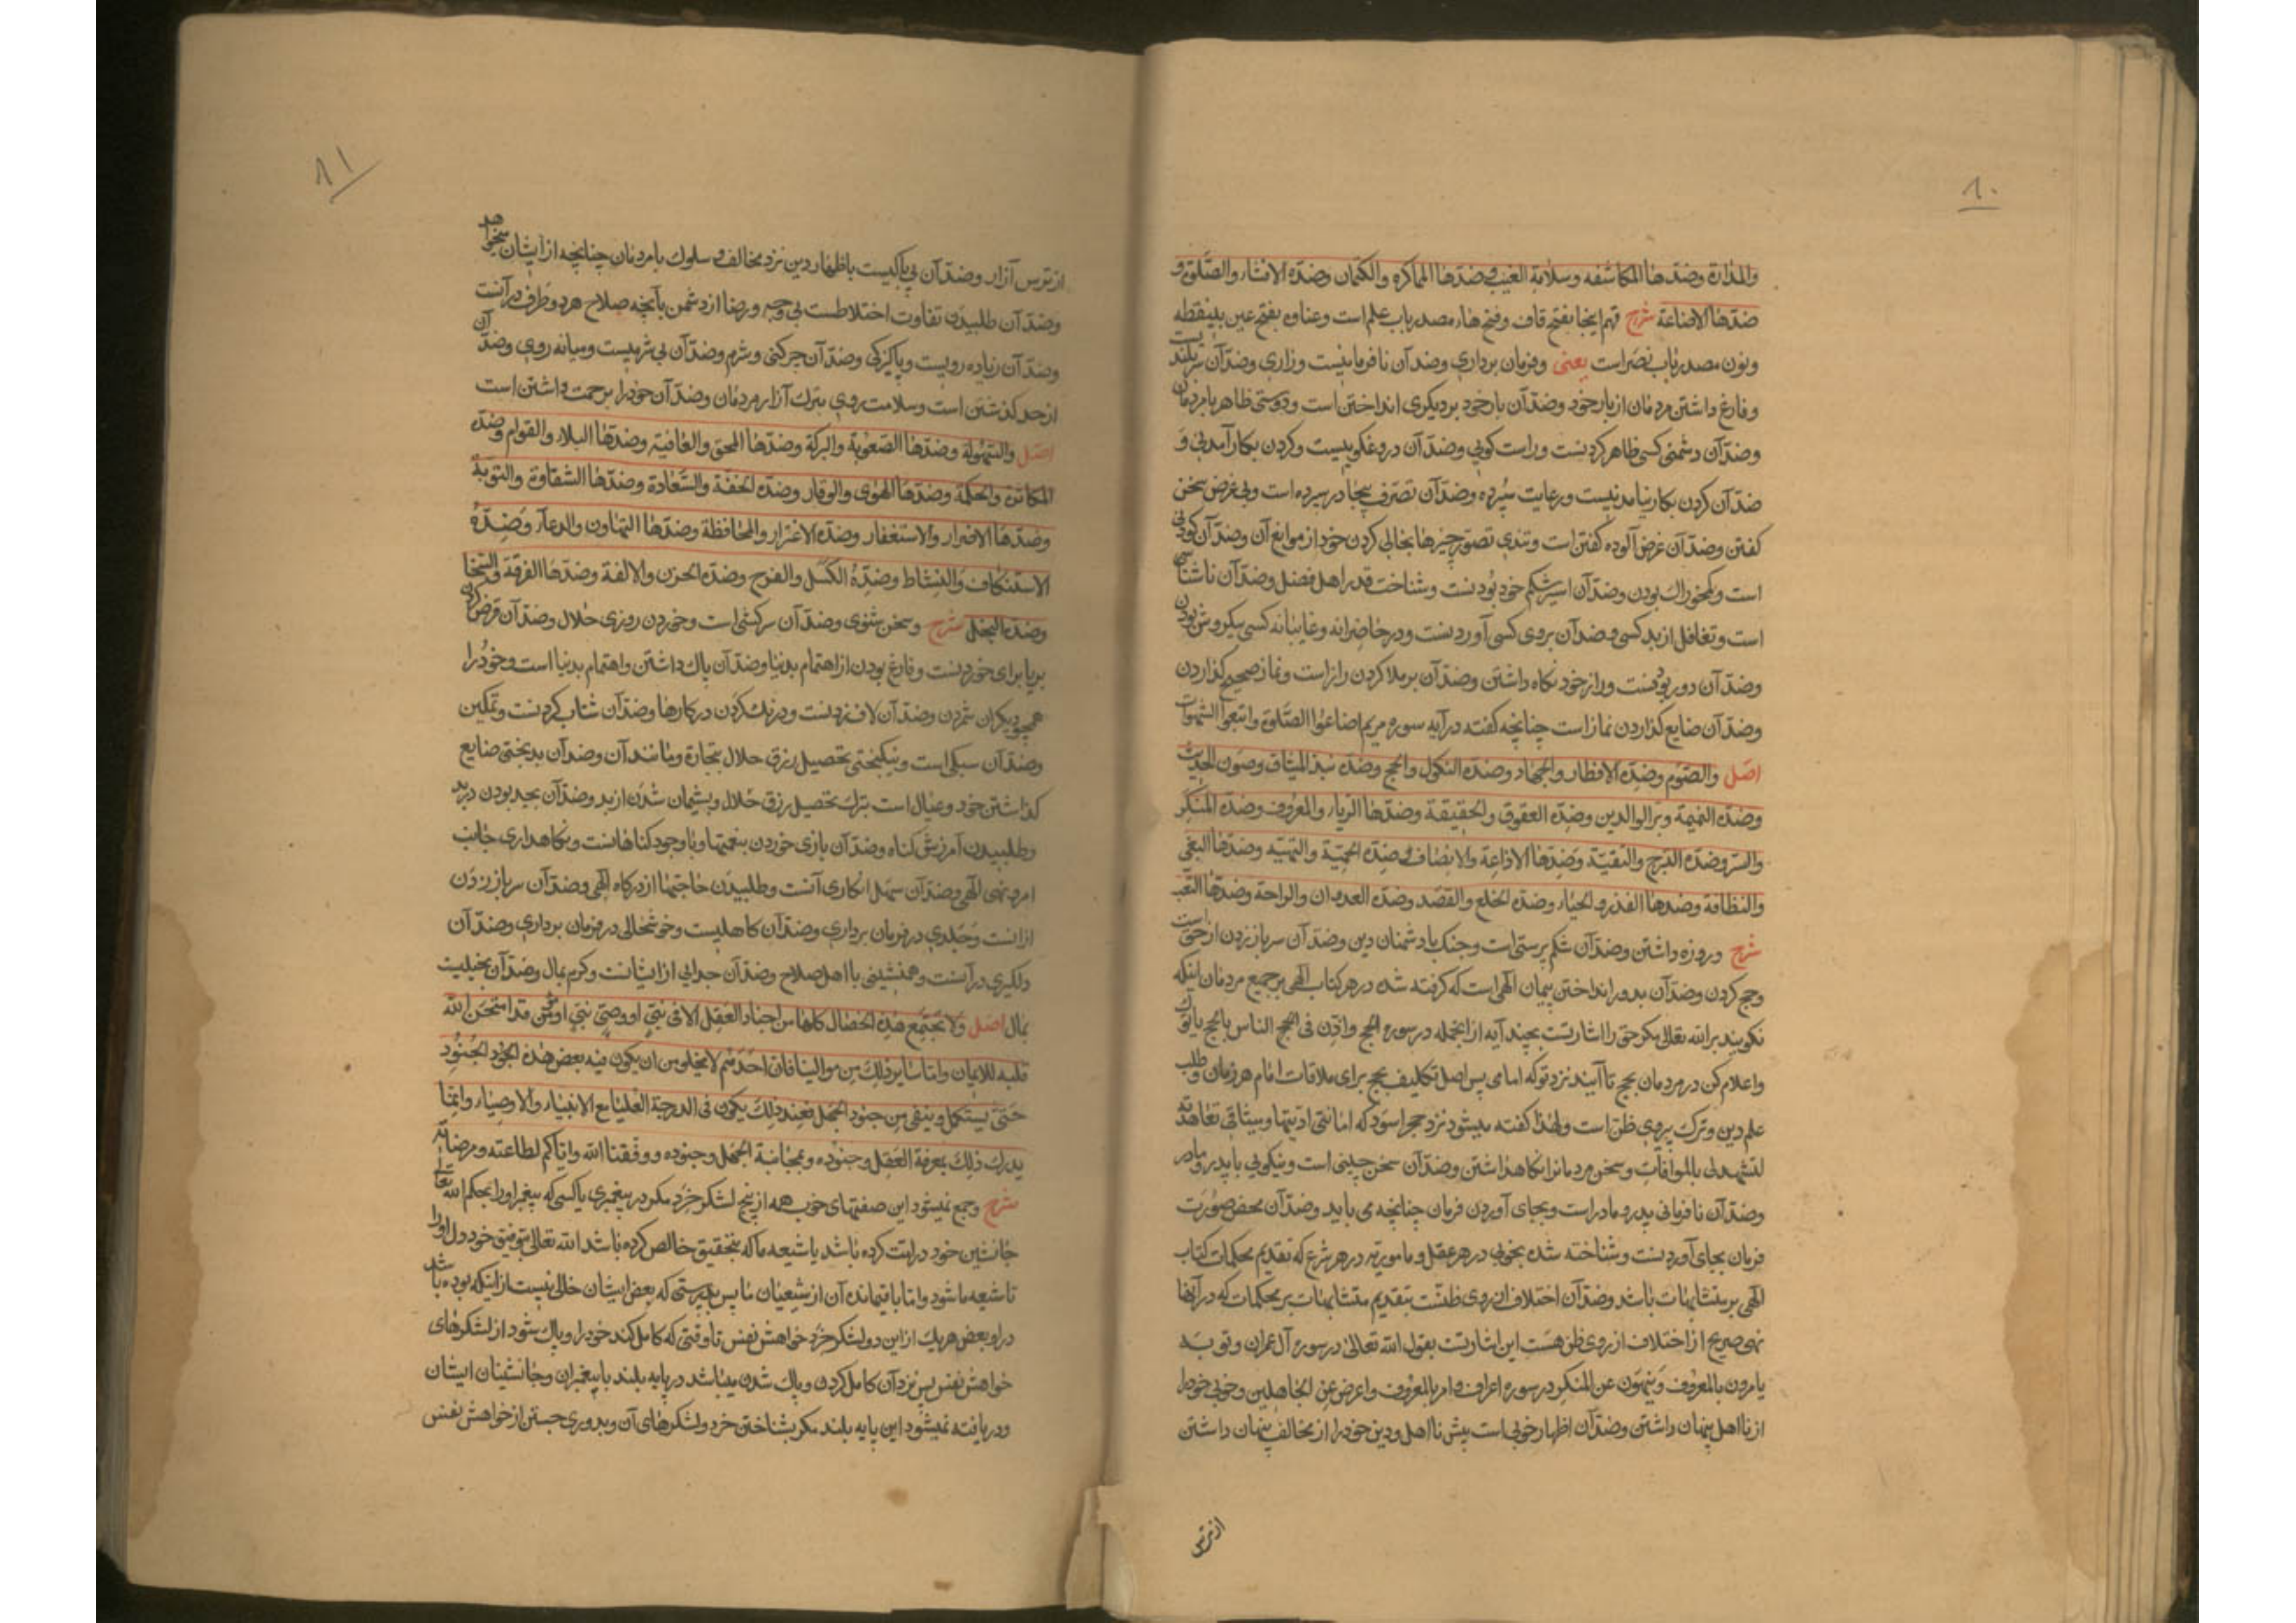 ٨٠
والمداراة وضدها المكاشفه وسلامة الغيب وضدها المماكره والكتمان وضده الافشاء والصلوة و
ضدها الاضاعة شرح فهم اینجا بفتح قاف وفتح ها، مصدر باب علم است وعناوه بفتح عین بینقطه
ونون مصدر باب نصر است یعنی وفرمان برداری وضد آن نافرمانیست وزاری وضد آن سربلندیست
وفارغ داشتن مردمان از بار خود وضد آن بار خود بر دیکری انداختن است ودوستی ظاهر با مردمان
وضد آن دشمنی کسی ظاهر کردنست وراست کویی وضد آن دروغکوییست وکردن بکار آمدنی و
ضد آن کردن بکار نیامدنیست ورعایت سپرده وضد آن تصرف بیجا در سپرده است وبی غرض سخن
کفتن وضد آن غرض آلوده کفتن است وتندی تصور چیزها بخالی کردن خود از موانع آن وضد آن کودنی
است وکم خوراک بودن وضد آن اسیر شکم خود بودنست وشناخت قدر اهل فضل وضد آن ناشناسی
است وتغافل از بد کسی وضد آن بروی کسی آوردنست ودر حاضرانه وغایبانه کسی یکروش بودن
وضد آن دورو بودنست وراز خود نکاه داشتن وضد آن برملا کردن راز است ونماز صحیح کذاردن
وضد آن ضایع کذاردن نماز است چنانچه کفته در آیه سوره مریم اضاعوا الصلوة واتبعوا الشهوات
اصل والصوم وضده الافطار والجهاد وضده النکول والحج وضده نبذ المیثاق وصون الحدیث
وضده النمیمة وبر الوالدین وضده العقوق والحقیقة وضدها الریاء والمعروف وضده المنکر
والستر وضده التبرج والتقیة وضدها الاذاعة والانصاف وضده الحمیة والتهیئه وضدها البغی
والنظافة وضدها القذر والحیاء وضده الخلع والقصد وضده العدوان والراحة وضدها التعب
شرح در روزه داشتن وضد آن شکم پرستی است وجنک با دشمنان دین وضد آن سر باز زدن از حق است
وحج کردن وضد آن بدور انداختن پیمان الهی است که کرفته شده در هر کتاب الهی بر جمیع مردمان اینکه
نکویند بر الله تعالی مکر حق را اشارتست بچند آیه از انجمله در سوره الحج واذن فی الحج الناس بالحج یاتوک
واعلام کن در مردمان بحج تا آیند نزد تو که امامی پس اصل تکلیف بحج برای ملاقات امام هر زمان وطلب
علم دین وترک پیروی ظن است ولهذا کفته میشود نزد حجر اسود که امانتی ادیتها ومیثاقی تعاهدته
لتشهد لی بالموافات وسخن مردمانرا نکاهداشتن وضد آن سخن چینی است ونیکویی با پدر ومادر
وضد آن نافرمانی پدر ومادر است وبجای آوردن فرمان چنانچه می باید وضد آن محض صورت
فرمان بجای آوردنست وشناخته شده بخوبی در هر عقل ومامور به در هر شرع که تقدیم محکمات کتاب
الهی بر متشابهات باشد وضد آن اختلاف از روی ظنست بتقدیم متشابهات بر محکمات که در آنها
نهی صریح از اختلاف از روی ظن هست این اشارتست بقول الله تعالی در سوره آل عمران وتوبه
یامرون بالمعروف وینهون عن المنکر در سوره اعراف وامر بالمعروف واعرض عن الجاهلین وخوبی خود را
از نااهل پنهان داشتن وضد آن اظهار خوبی است پیش نااهل ودین خود را از مخالف پنهان داشتن
از ترس
٨١
از ترس آزار وضد آن بی باکیست باظهار دین نزد مخالف وسلوک با مردمان چنانچه از ایشان میخواهد
وضد آن طلبیدن تفاوت اختلاطست بی وجه ورضا از دشمن بآنچه صلاح هر دو طرف در آنست
وضد آن زیاده رویست وپاکیزکی وضد آن چرکنی وشرم وضد آن بی شرمیست ومیانه روی وضد آن
از حد کذشتن است وسلامت روی بترک آزار مردمان وضد آن خود را بزحمت داشتن است
اصل والسهولة وضدها الصعوبة والبرکة وضدها المحق والعافیة وضدها البلاء والقوام وضده
المکاثرة والحکمة وضدها الهوی والوقار وضده الخفة والسعادة وضدها الشقاوة والتوبة
وضدها الاصرار والاستغفار وضده الاغترار والمحافظة وضدها التهاون والدعاء وضده
الاستنکاف والنشاط وضده الکسل والفرح وضده الحزن والالفة وضدها الفرقة والسخا
وضده البخل شرح وسخن شنوی وضد آن سرکشی است وخوردن روزی حلال وضد آن قرض کردن
بریا برای خوردنست وفارغ بودن از اهتمام بدنیا وضد آن باک داشتن واهتمام بدنیا است وخود را
همچو دیکران شمردن وضد آن لاف زدنست ودرنک کردن در کارها وضد آن شتاب کردنست وتمکین
وضد آن سبکی است ونیکبختی تحصیل رزق حلال بتجارة ومانند آن وضد آن بدبختی ضایع
کذاشتن خود وعیال است بترک تحصیل رزق حلال وپشیمان شدن از بد وضد آن بجد بودن در بد
وطلبیدن آمرزش کناه وضد آن بازی خوردن بنعمتها وباوجود کناهانست ونکاهداری جانب
امر ونهی الهی وضد آن سهل انکاری آنست وطلبیدن حاجتها از درکاه الهی وضد آن سر باز زدن
از آنست وجلدی در فرمان برداری وضد آن کاهلیست وخوشحالی در فرمان برداری وضد آن
دلکیری در آنست وهمنشینی با اهل صلاح وضد آن جدایی از ایشانست وکرم بمال وضد آن بخیلیست
بمال اصل ولا تجتمع هذه الخصال کلها من اجناد العقل الا فی نبی او وصی نبی او مؤمن قد امتحن الله
قلبه للایمان واما سایر ذلک من موالینا فان احدهم لا یخلو من ان یکون فیه بعض هذه الجنود
حتی یستکمل وینقی من جنود الجهل فعند ذلک یکون فی الدرجة العلیا مع الانبیاء والاوصیاء وانما
یدرک ذلک بمعرفة العقل وجنوده وبمجانبة الجهل وجنوده ووفقنا الله وایاکم لطاعته ومرضاته
شرح وجمع نمیشود این صفتهای خوب همه از پنج لشکر خرد مکر در پیغمبری یا کسی که پیغمبر او را بحکم الله تعالی
جانشین خود در امت کرده باشد یا شیعه ما که بتحقیق خالص کرده باشد الله تعالی بتوفیق خود دل او را
تا شیعه ما شود واما باقیمانده آن از شیعیان ما پس بدرستی که بعض ایشان خالی نیست از اینکه بوده باشد
در او بعض هر یک از این دو لشکر خرد خواهش نفس تا وقتی که کامل کند خود را وپاک شود از لشکرهای
خواهش نفس پس نزد آن کامل کردن وپاک شدن میباشد در پایه بلند با پیغمبران وجانشینان ایشان
ودریافته نمیشود این پایه بلند مکر بشناختن خرد ولشکرهای آن وبدوری جستن از خواهش نفس